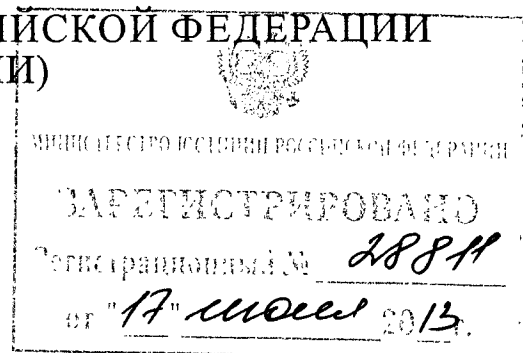 ЙСКОЙ ФЕДЕРАЦИИ
И)
МИНИСТЕРСТВО ЮСТИЦИИ РОССИЙСКОЙ ФЕДЕРАЦИИ
ЗАРЕГИСТРИРОВАНО
Регистрационный № 28811
от "17" июня 2013г.